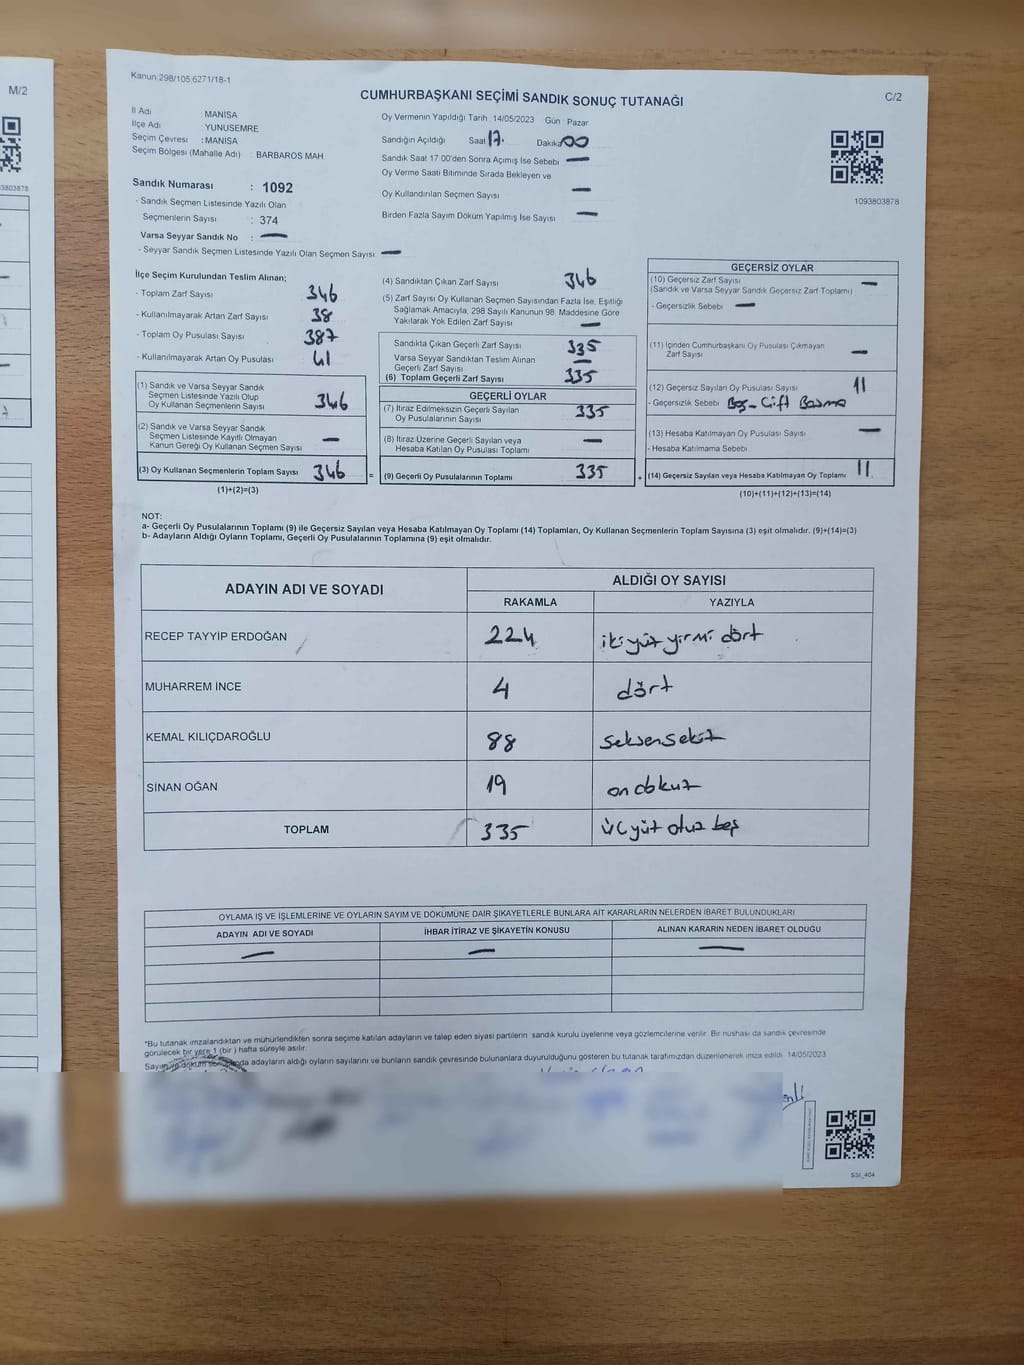 M/2
Kanun 298/105;6271/18-1
CUMHURBAŞKANI SEÇİMİ SANDIK SONUÇ TUTANAĞI
C/2
İl Adı : MANİSA
İlçe Adı : YUNUSEMRE
Seçim Çevresi : MANİSA
Seçim Bölgesi (Mahalle Adı) : BARBAROS MAH.
Oy Vermenin Yapıldığı Tarih :14/05/2023 Gün Pazar
Sandığın Açıldığı Saat 17. Dakika 00
Sandık Saat 17:00'den Sonra Açımış İse Sebebi —
Oy Verme Saati Bitiminde Sırada Bekleyen ve
Oy Kullandırılan Seçmen Sayısı —
Birden Fazla Sayım Döküm Yapılmış İse Sayısı —
1093803878
Sandık Numarası : 1092
- Sandık Seçmen Listesinde Yazılı Olan
Seçmenlerin Sayısı : 374
Varsa Seyyar Sandık No : —
- Seyyar Sandık Seçmen Listesinde Yazılı Olan Seçmen Sayısı: —
İlçe Seçim Kurulundan Teslim Alınan;
- Toplam Zarf Sayısı 346
- Kullanılmayarak Artan Zarf Sayısı 38
- Toplam Oy Pusulası Sayısı 387
- Kullanılmayarak Artan Oy Pusulası 41
(1) Sandık ve Varsa Seyyar Sandık
Seçmen Listesinde Yazılı Olup
Oy Kullanan Seçmenlerin Sayısı 346
(2) Sandık ve Varsa Seyyar Sandık
Seçmen Listesinde Kayıtlı Olmayan
Kanun Gereği Oy Kullanan Seçmen Sayısı —
(3) Oy Kullanan Seçmenlerin Toplam Sayısı 346
(1)+(2)=(3)
=
(4) Sandıktan Çıkan Zarf Sayısı 346
(5) Zarf Sayısı Oy Kullanan Seçmen Sayısından Fazla İse, Eşitliği
Sağlamak Amacıyla, 298 Sayılı Kanunun 98. Maddesine Göre
Yakılarak Yok Edilen Zarf Sayısı —
Sandıkta Çıkan Geçerli Zarf Sayısı 335
Varsa Seyyar Sandıktan Teslim Alınan
Geçerli Zarf Sayısı —
(6) Toplam Geçerli Zarf Sayısı 335
GEÇERLİ OYLAR
(7) İtiraz Edilmeksizin Geçerli Sayılan
Oy Pusulalarının Sayısı 335
(8) İtiraz Üzerine Geçerli Sayılan veya
Hesaba Katılan Oy Pusulası Toplamı —
(9) Geçerli Oy Pusulalarının Toplamı 335
+
GEÇERSİZ OYLAR
(10) Geçersiz Zarf Sayısı —
(Sandık ve Varsa Seyyar Sandık Geçersiz Zarf Toplamı)
- Geçersizlik Sebebi —
(11) İçinden Cumhurbaşkanı Oy Pusulası Çıkmayan
Zarf Sayısı —
(12) Geçersiz Sayılan Oy Pusulası Sayısı 11
- Geçersizlik Sebebi Boş - Çift Basma
(13) Hesaba Katılmayan Oy Pusulası Sayısı —
- Hesaba Katılmama Sebebi
(14) Geçersiz Sayılan veya Hesaba Katılmayan Oy Toplamı 11
(10)+(11)+(12)+(13)=(14)
NOT:
a- Geçerli Oy Pusulalarının Toplamı (9) ile Geçersiz Sayılan veya Hesaba Katılmayan Oy Toplamı (14) Toplamları, Oy Kullanan Seçmenlerin Toplam Sayısına (3) eşit olmalıdır. (9)+(14)=(3)
b- Adayların Aldığı Oyların Toplamı, Geçerli Oy Pusulalarının Toplamına (9) eşit olmalıdır.
ADAYIN ADI VE SOYADI ALDIĞI OY SAYISI
RAKAMLA YAZIYLA
RECEP TAYYİP ERDOĞAN 224 iki yüz yirmi dört
MUHARREM İNCE 4 dört
KEMAL KILIÇDAROĞLU 88 seksen sekiz
SİNAN OĞAN 19 on dokuz
TOPLAM 335 üç yüz otuz beş
OYLAMA İŞ VE İŞLEMLERİNE VE OYLARIN SAYIM VE DÖKÜMÜNE DAİR ŞİKAYETLERLE BUNLARA AİT KARARLARIN NELERDEN İBARET BULUNDUKLARI
ADAYIN ADI VE SOYADI İHBAR İTİRAZ VE ŞİKAYETİN KONUSU ALINAN KARARIN NEDEN İBARET OLDUĞU
— — —
*Bu tutanak imzalandıktan ve mühürlendikten sonra seçime katılan adayların ve talep eden siyasi partilerin sandık kurulu üyelerine veya gözlemcilerine verilir. Bir nüshası da sandık çevresinde
görülecek bir yere 1 (bir ) hafta süreyle asılır.
Sayım ve döküm sonunda adayların aldığı oyların sayılarını ve bunların sandık çevresinde bulunanlara duyurulduğunu gösteren bu tutanak tarafımızdan düzenlenerek imza edildi. 14/05/2023
SSI_404